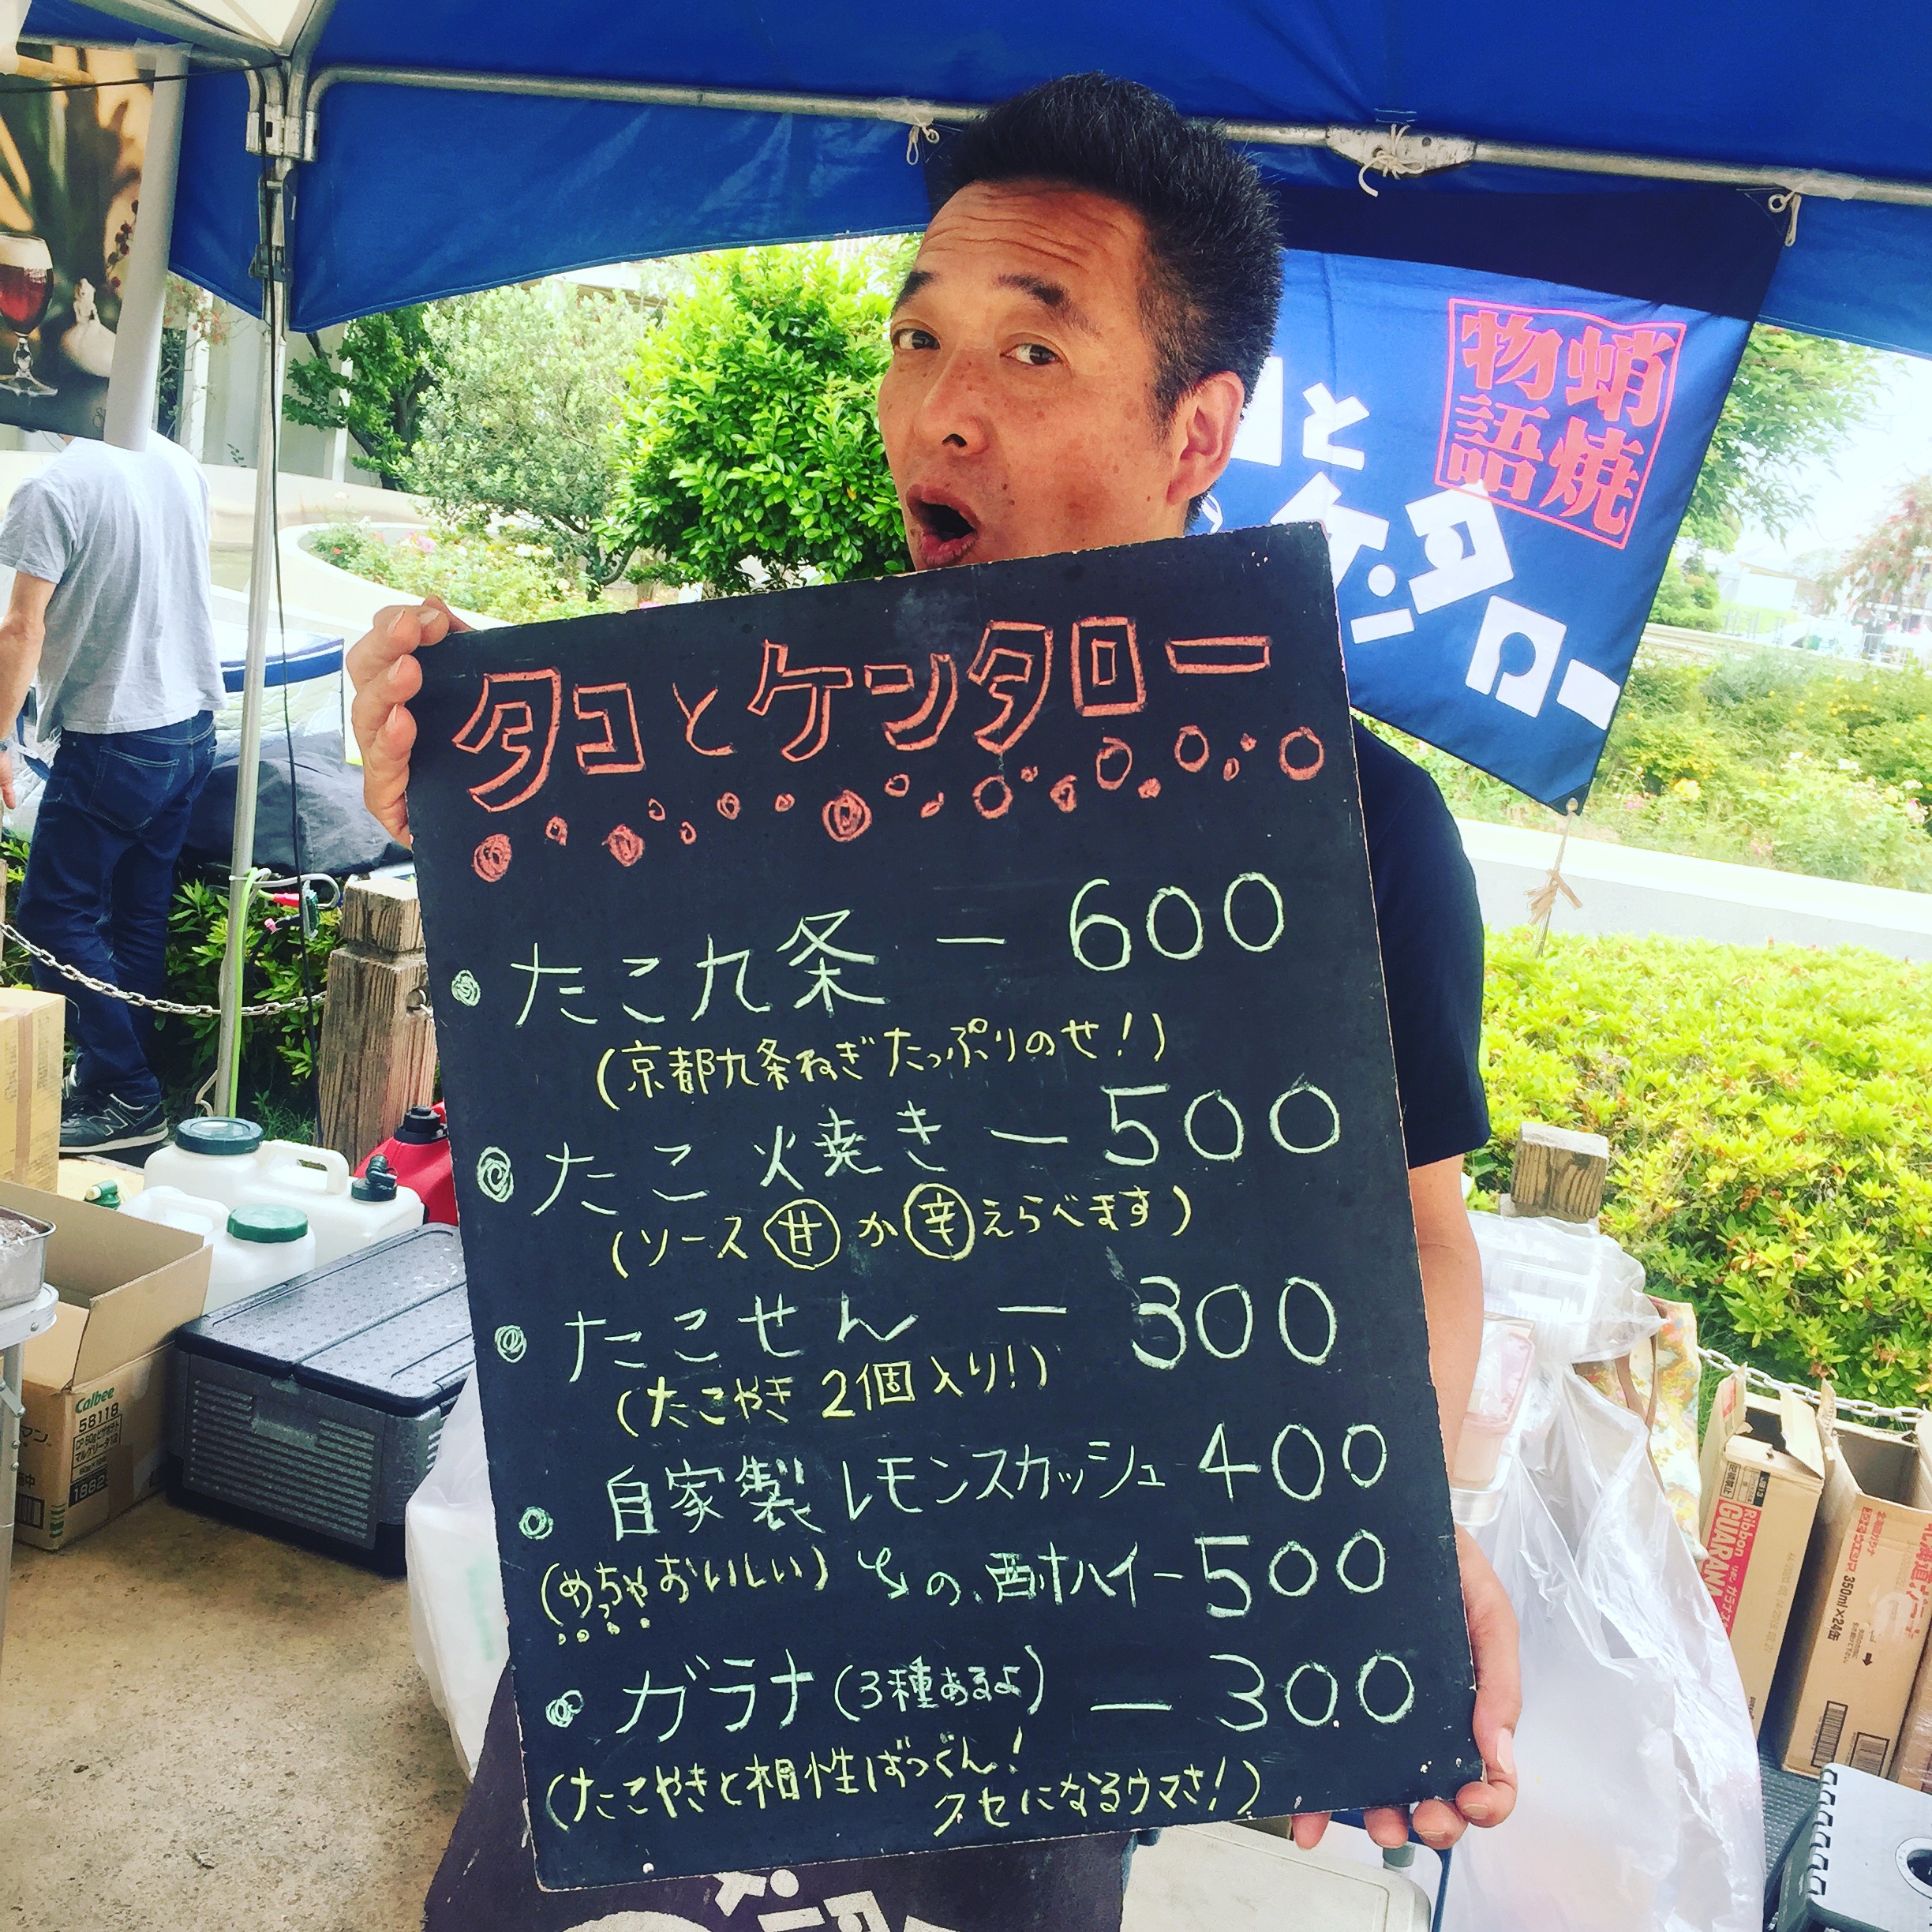 タコとケンタロー
たこ九条 ー 600
(京都九条ねぎたっぷりのせ!)
たこ焼き ー 500
(ソース 甘 か 辛 えらべます)
たこせん ー 300
(たこやき 2個入り!)
自家製レモンスカッシュ 400
(めっちゃおいしい) その、酎ハイー500
ガラナ(3種あるよ) ー 300
(たこやきと相性ばつぐん!
クセになるウマさ!)
蛸焼
物語
と
ケンタロー
Calbee
58118
Ribbon
GUARANA
350ml×24缶